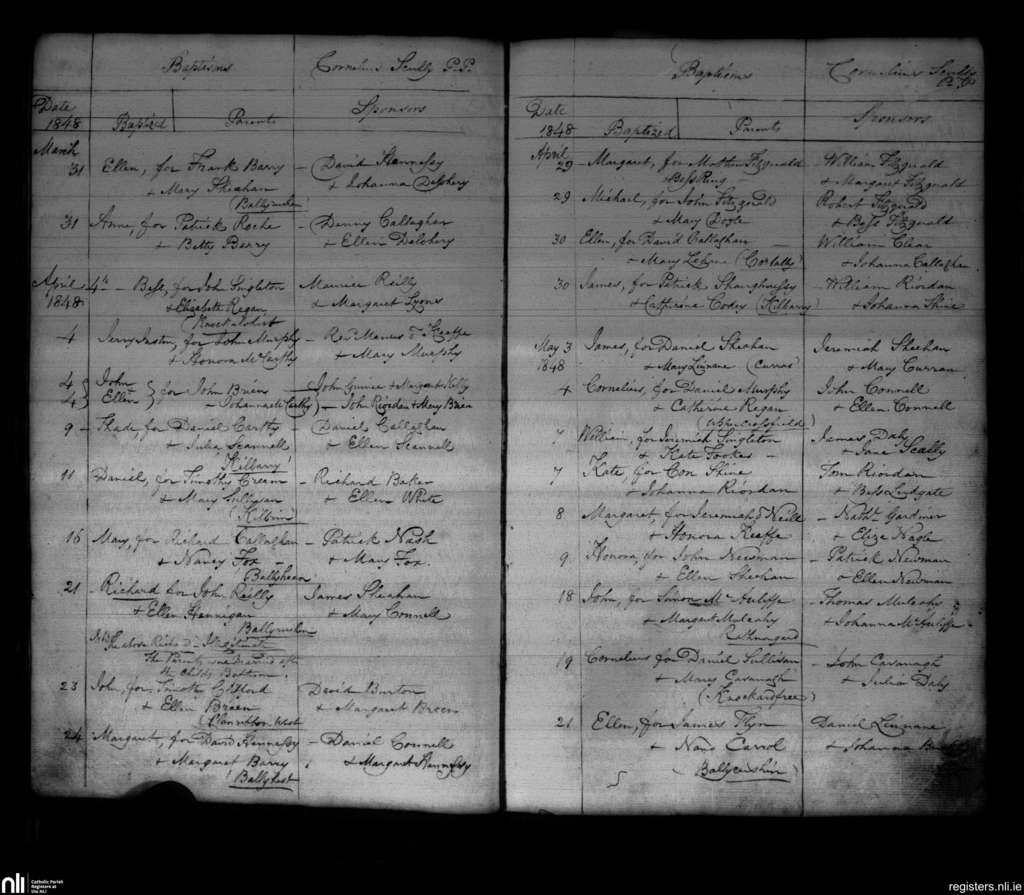 Baptisms Cornelius Scully P.P.
Date
1848 Baptized Parents Sponsors
March
31 Ellen, for Frank Barry - David Hennessy
+ Mary Sheahan + Johanna Delohery
31 Anne, for Patrick Roche - Denny Callaghan
+ Betty Barry + Ellen Delohery
April 4th - Bess, for John Singleton Maurice Reilly
1848 + Elizabeth Regan + Margaret Lyons
4 for John Murphy - Revd Manus O'Keeffe
+ Honora McCarthy + Mary Murphy
4 John
4 Ellen } for John Brien John + Margaret Kelly
- Johanna McCarthy) - John Riordan + Mary Brien
9 - Thade, for Daniel Carthy - Daniel Callaghan
+ Julia Scannell + Ellen Scannell
(Kilbarry)
11 Daniel, for Timothy Creem - Richard Baker
+ Mary Sullivan + Ellen White
(Kilbrin)
16 Mary, for Richard Callaghan - Patrick Nash
+ Nancy Fox - + Mary Fox.
Ballyheen
21 - Richard for John Reilly James Sheahan
+ Ellen Hennigan + Mary Connell
NB The above Richd is Illegitimate
The Parents were married after
the child's Baptism.
23 John, for Timothy Clifford David Burton
+ Ellen Breen + Margaret Breen
West
24 Margaret, for David Hennessy - Daniel Connell
+ Margaret Barry + Margaret Hennessy
Baptisms Cornelius Scully
P.P.
Date
1848 Baptized Parents Sponsors
April
29 - Margaret, for Fitzgerald - William Fitzgerald
Bess Ring - + Margaret Fitzgerald
29 Michael, for John Fitzgerald Robert Fitzgerald
+ Mary Doyle + Bess Fitzgerald
30 Ellen, for David Callaghan - William Clear
+ Mary Lehane + Johanna Callaghan
30 James, for Patrick Shaughnessy - William Riordan
+ Catherine Corley (Kilbarry) + Johanna Shine
May 3 James, for Daniel Sheahan Jeremiah Sheehan
1848 + Mary Linnane (Curras) + Mary Curran
4 Cornelius, for Daniel Murphy John Connell
+ Catherine Regan + Ellen Connell
7 William, for Jeremiah Singleton James Daly
+ Kate Tookes - + Jane Scally
7 Kate, for Con Shine Tom Riordan
+ Johanna Riordan + Bess Lindgate
8 Margaret, for Jeremiah O'Neill - Nathl Gardiner
+ Honora Keeffe + Eliza Nagle
9 Honora, for John Newman - Patrick Newman
+ Ellen Sheehan + Ellen Newman
18 John, for Simon McAuliffe - Thomas Mulcahy
+ Margaret Mulcahy + Johanna McAuliffe
19 Cornelius for Daniel Sullivan - John Cavanagh
+ Mary Cavanagh + Julia Daly
(Knockardfree)
21 Ellen, for James Flyn Daniel Linnane
+ Nano Carrol + Johanna
nli Catholic Parish Registers at the NLI
registers.nli.ie